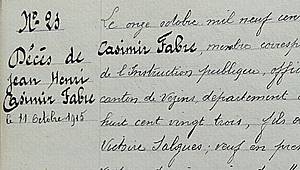 Nº 23
Décès de
Jean Henri
Casimir Fabre
le 11 Octobre 1915
Le onze octobre mil neuf cent
Casimir Fabre, membre corresp
de l'Instruction publique, offici
canton de Vezins, département d
huit cent vingt trois, fils d
Victoire Salgues; veuf en prem